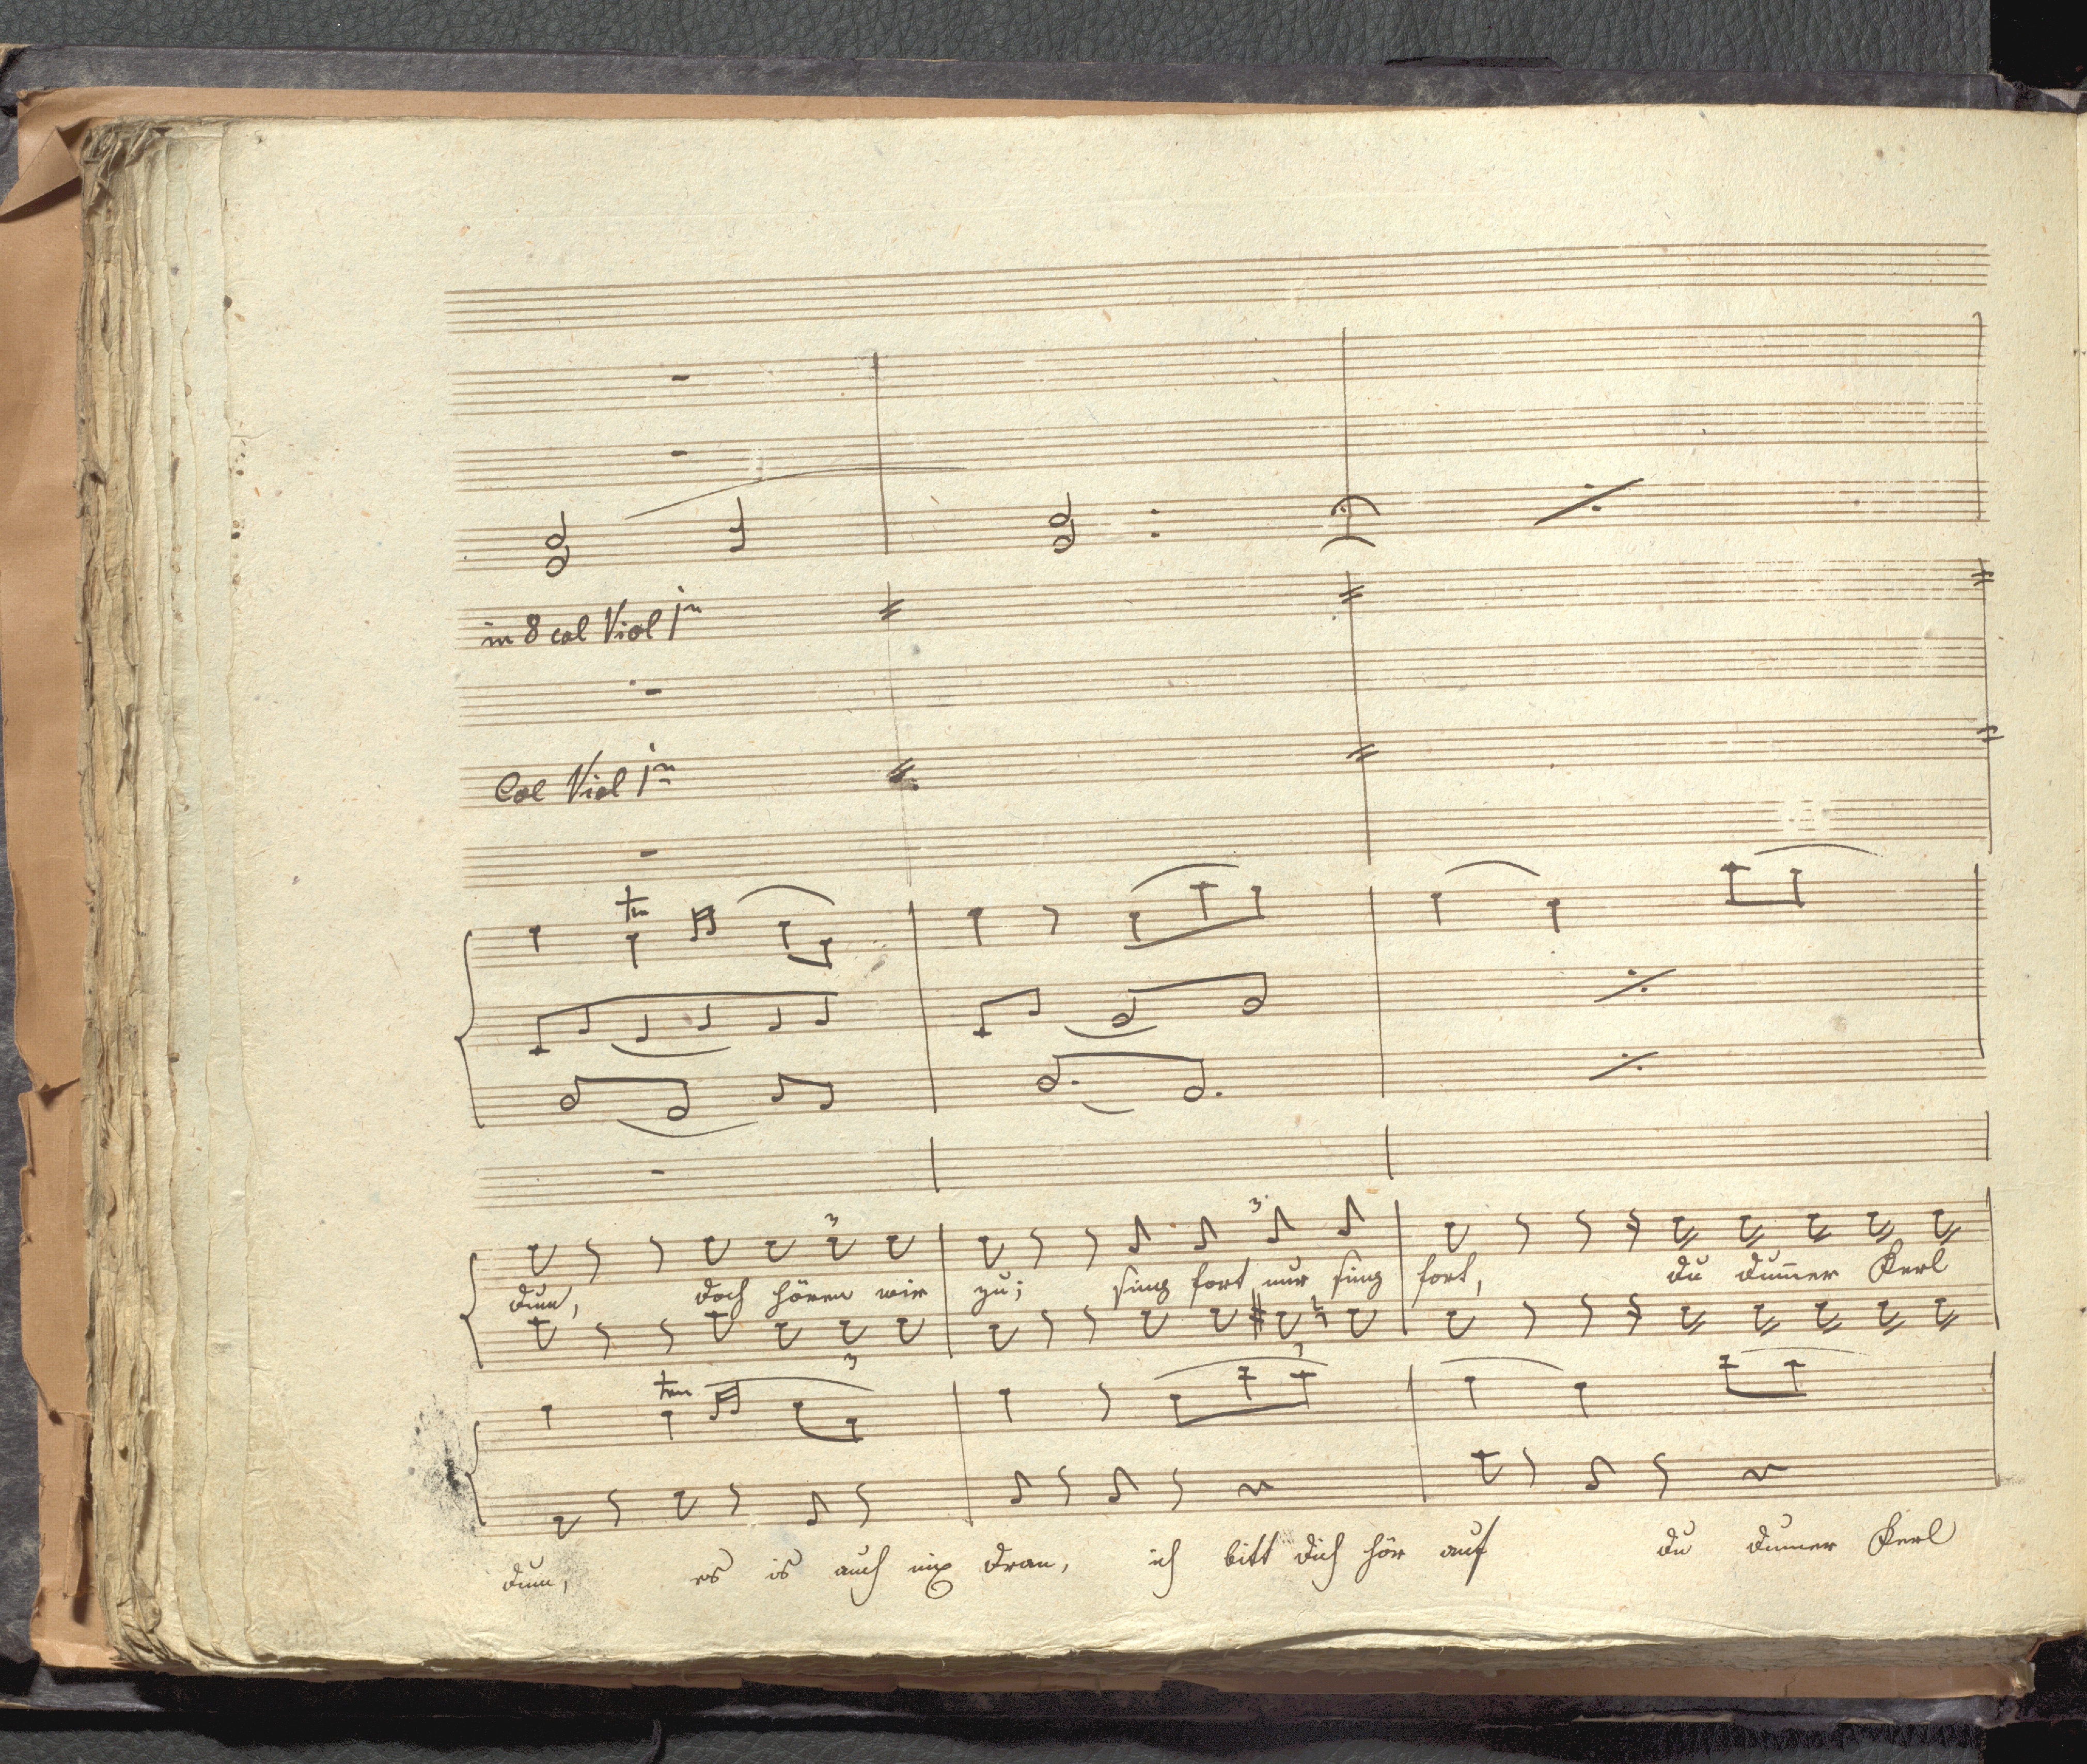 in 8 col Viol 1mo
Col Viol 1mo
tr
3 3
dum, doch hören wir zu; sing fort nur sing fort, du dum̅er Kerl
3 3
tr
dum, es is auch nix dran, ich bitt dich hör auf du dummer Kerl